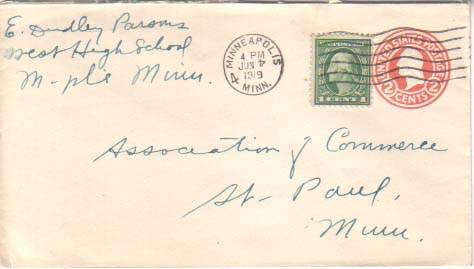 E. Dudley Parsons
West High School
M-pls Minn.
MINNEAPOLIS
4 PM
JUN 4
1919
MINN.
4
1 CENT 1
UNITED STATES POSTAGE
2 CENTS 2
Association of Commerce
St. Paul,
Minn.